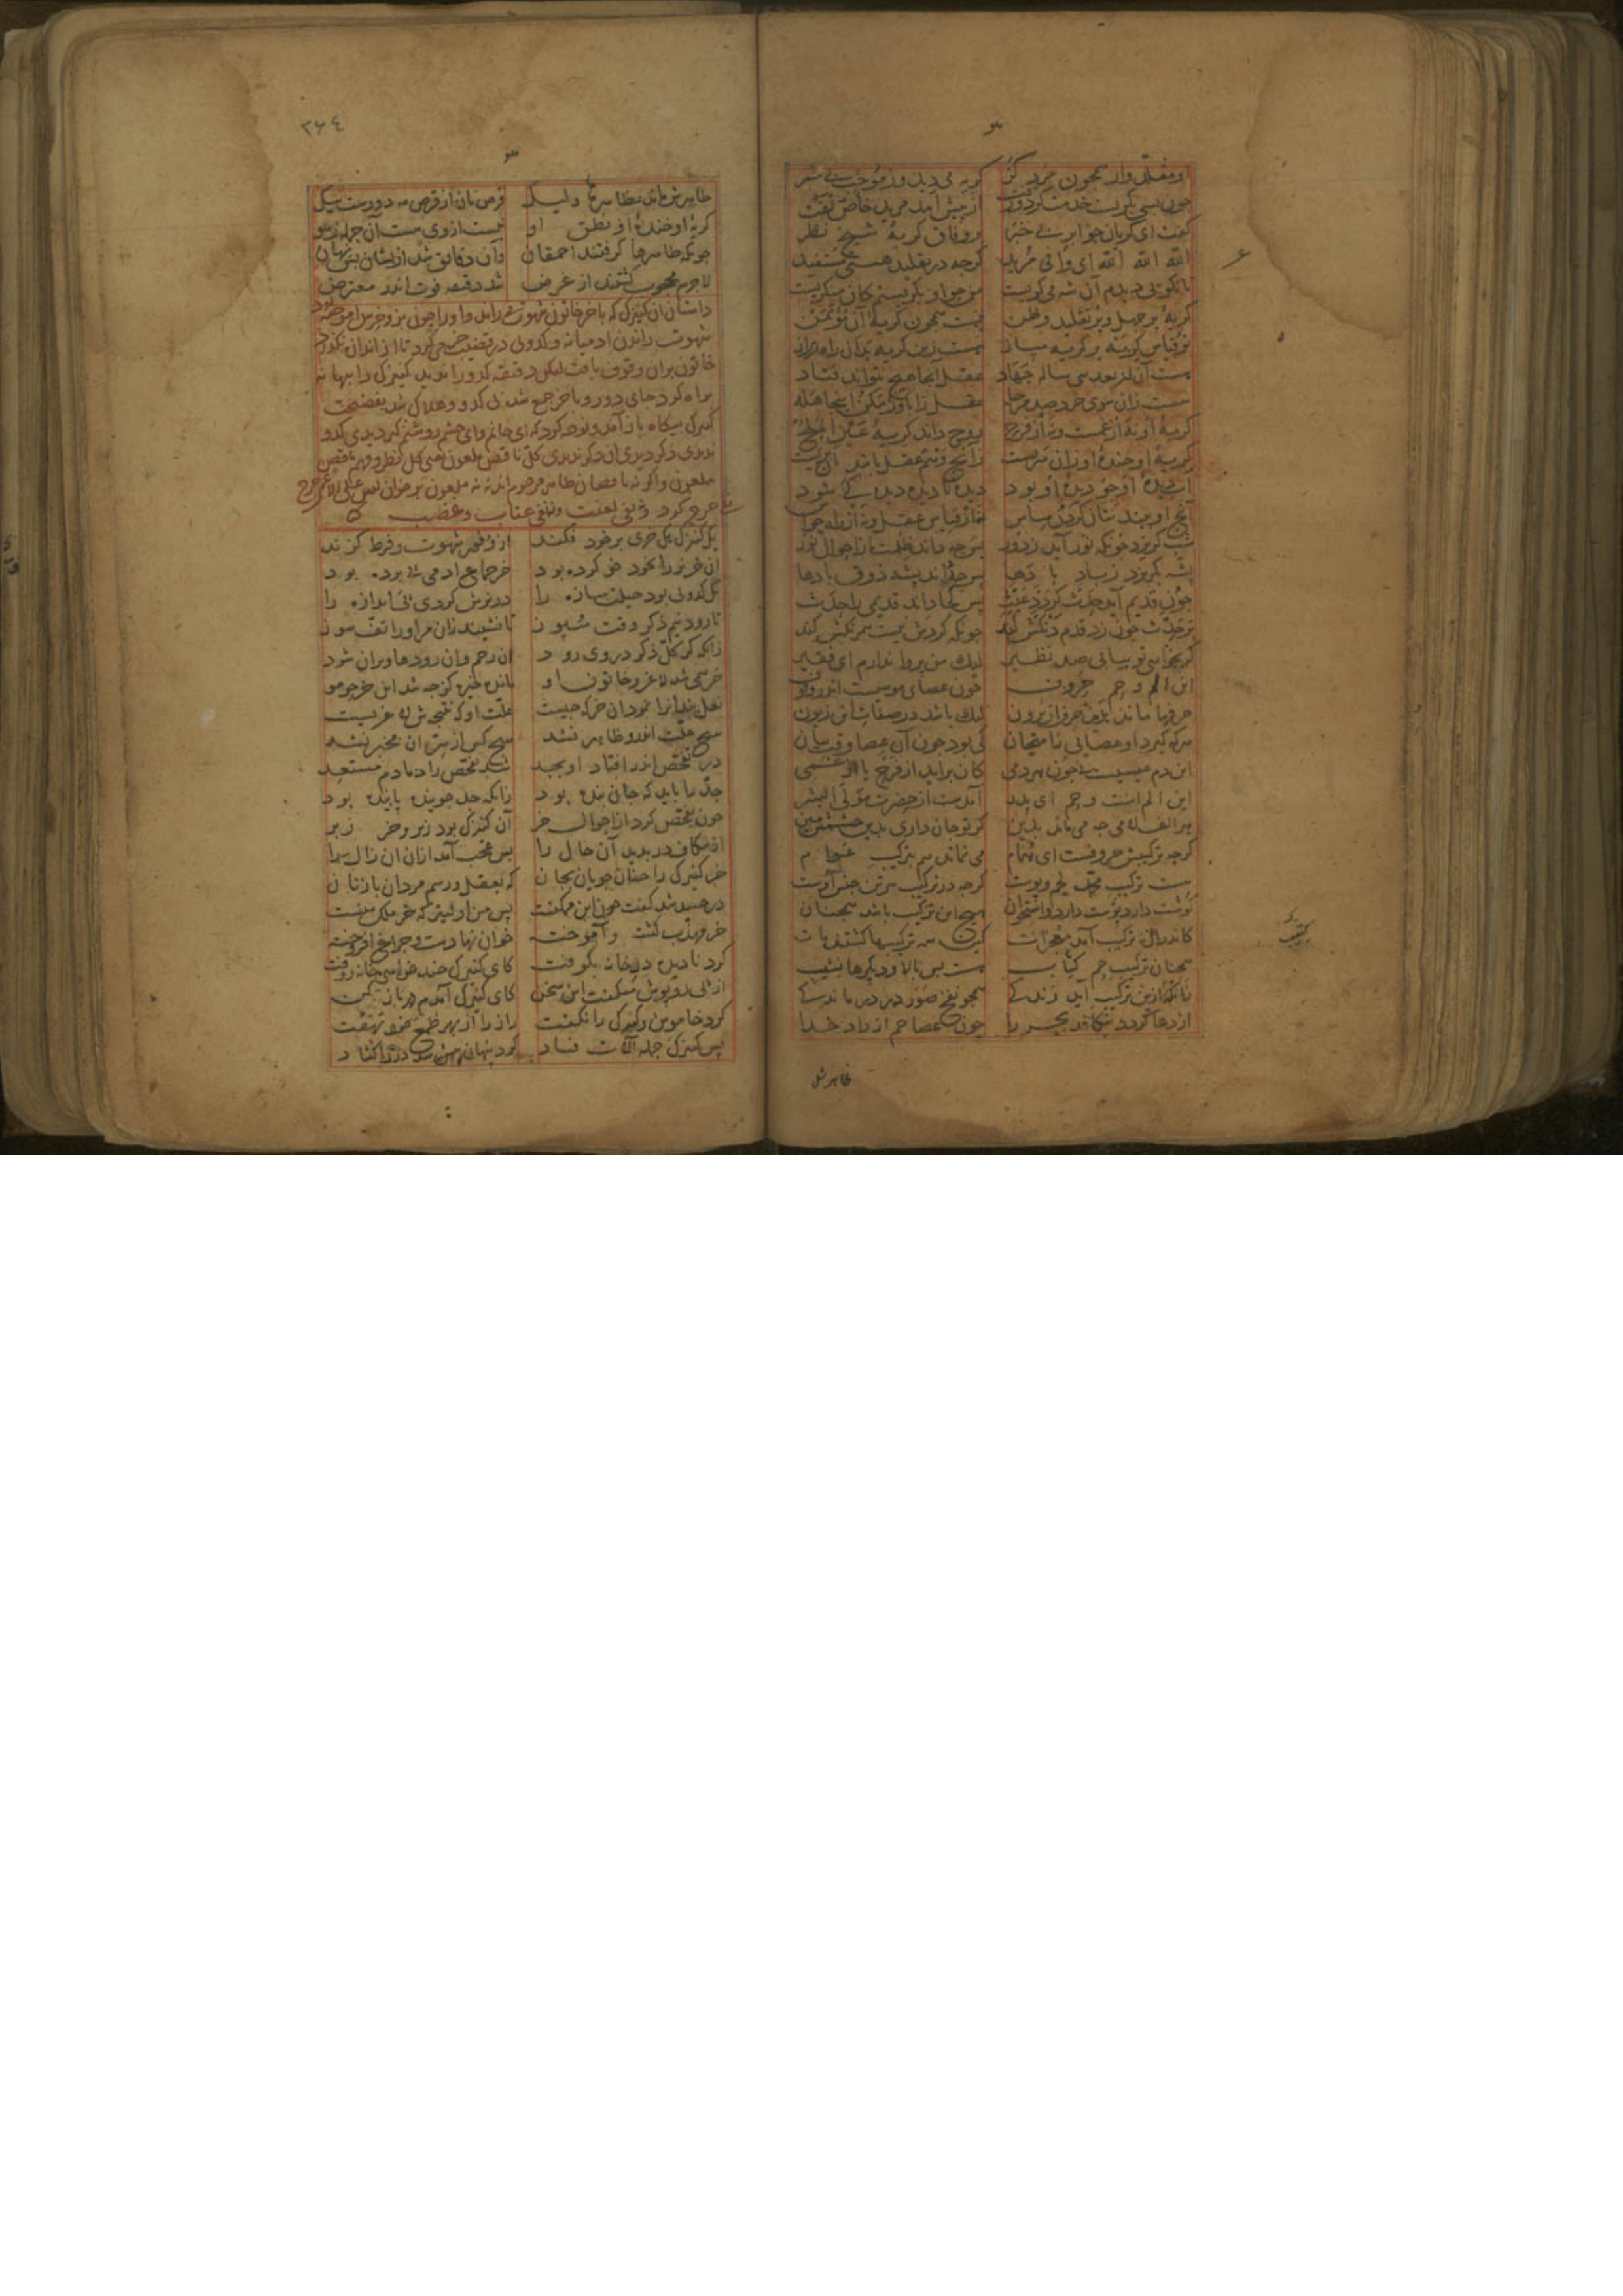 او مقلدوار همچون مرد کر گریه می‌دید و ز موجب بی‌خبر
چون بسی بگریست خدمت کرد و رفت از پیش آمد مرید خاص تفت
گفت ای گریان چو ابر بی خبر بر وفاق گریهٔ شیخ نظر
الله الله الله ای وافی مرید گرچه در تقلید هستی مستفید
تا نگویی دیدم آن شه می‌گریست من چو او بگریستم کان منکریست
گریهٔ پر جهل و پر تقلید و ظن نیست همچون گریهٔ آن مؤتمن
تو قیاس گریه بر گریه مساز هست زین گریه بدان راه دراز
هست آن از بعد سی ساله جهاد عقل آنجا هیچ نتواند فتاد
هست زان سوی خرد صد مرحله عقل را واقف مکن اینجا هله
گریهٔ او نه از غمست و نه از فرح روح داند گریهٔ عین الملح
گریهٔ او خندهٔ او زان سریست زانچ وهم عقل باشد آن بریست
آب دیدهٔ او چو دیدهٔ او بود دیدهٔ نادیده دیده کی شود
آنچ او بیند نتان کردن مساس نه از قیاس عقل و نه از راه حواس
شب گریزد چونکه نور آید ز دور پس چه داند ظلمت از احوال نور
پشه بگریزد ز باد با دها پس چه داند پشه ذوق بادها
چون قدیم آید حدث گردد عبث پس کجا داند قدیمی را حدث
بر حدث چون زد قدم دنگش کند چونکه کردش نیست همرنگش کند
گر بخواهی تو بیابی صد نظیر لیک من پروا ندارم ای فقیر
این الم و حم حروف چون عصای موسی است اندر وقوف
حرفها ماند بدین حرف از برون لیک باشد در صفات این زبون
هرکه گیرد او عصایی ز امتحان کی بود چون آن عصا وقت بیان
این دم عیسیست نه چون هر دمی کان برآید از فرح یا از غمی
این الم است و حم ای پدر آمدست از حضرت مولی البشر
هر الف لامی چه می‌ماند بدین گر تو جان داری بدین چشمش مبین
گرچه ترکیبش حروفست ای همام می‌نماند هم بترکیب عوام
هست ترکیب محمد لحم و پوست گرچه در ترکیب هر تن جنس اوست
گوشت دارد پوست دارد و استخوان هیچ این ترکیب را باشد همچنان
کاندر آن ترکیب آمد معجزات که همه ترکیبها گشتند مات
همچنان ترکیب حم کتاب هست بس بالا و دیگرها نشیب
زانکه ازین ترکیب آید زندگی همچو نفخ صور در درماندگی
اژدها گردد شکافد بحر را چون عصا حم از داد خدا
ظاهرش
٣۶٤
ظاهرش ماند بظاهرها ولیک قرص نان از قرص مه دورست نیک
گریهٔ او خندهٔ او نطق او نیست از وی هست آن جمله ز هو
چونکه ظاهرها گرفتند احمقان وآن دقایق شد ازیشان بس نهان
لاجرم محجوب گشتند از غرض شد دقیقه فوت اندر معترض
داستان آن کنیزک که با خر خاتون شهوت می‌راند و او را چون بز و خرس آموخته بود
شهوت راندن آدمیانه و کدویی در قضیب خر می‌کرد تا از اندازه نگذرد
خاتون بر آن وقوف یافت لیکن دقیقه کدو را ندید کنیزک را ببهانه
براه کرد جای دور و با خر جمع شد بی کدو و هلاک شد بفضیحت
کنیزک بیگاه باز آمد و نوحه کرد که ای جانم و ای چشم روشنم کیر دیدی کدو
ندیدی ذکر دیدی آن دگر ندیدی کل ناقص ملعون یعنی کل نظر و فهم ناقص
ملعون و اگر نه ناقصان ظاهر مرحوم‌اند نه ملعون برخوان لیس علی الاعمی حرج
نفی حرج کرد و نفی لعنت و نفی عتاب و غضب
یک کنیزک یک خری بر خود فکند از وفور شهوت و فرط گزند
آن خر نر را بخود خو کرده بود خر جماع آدمی پی برده بود
یک کدویی بود حیلت‌سازه را در نرش کردی پی اندازه را
تا رود نیم ذکر وقت سپوز
زانکه گر کل ذکر در وی رود آن رحم وآن روده‌ها ویران شود
خر همی شد لاغر و خاتون او مانده خیره کز چه شد این خر چو مو
نعلبندان را نمود آن خر که چیست علت او که نتیجه‌ش لاغریست
هیچ علت اندرو ظاهر نشد هیچ کس از سر آن مخبر نشد
در تفحص اندر افتاد او بجد شد تفحص را دمادم مستعد
جد را باید که جان بنده بود زانکه جد جوینده یابنده بود
چون تفحص کرد از احوال خر آن کنیزک بود زیر و خر زبر
از شکاف در بدید آن حال را بس عجب آمد از آن آن زال را
خر کنیزک را چنان جویان بجان که بعقل و رسم مردان با زنان
در حسد شد گفت چون این ممکنست پس من اولیتر که خر ملک منست
خر مهذب گشت و آموخته خوان نهادست و چراغ افروخته
کرد نادیده در خانه بکوفت کای کنیزک چند خواهی خانه روفت
از پی روپوش می‌گفت این سخن کای کنیزک آمدم در باز کن
کرد خاموش و کنیزک را نگفت راز را از بهر طمع خود نهفت
پس کنیزک جمله آلات فساد کرد پنهان پیش شد در را گشاد